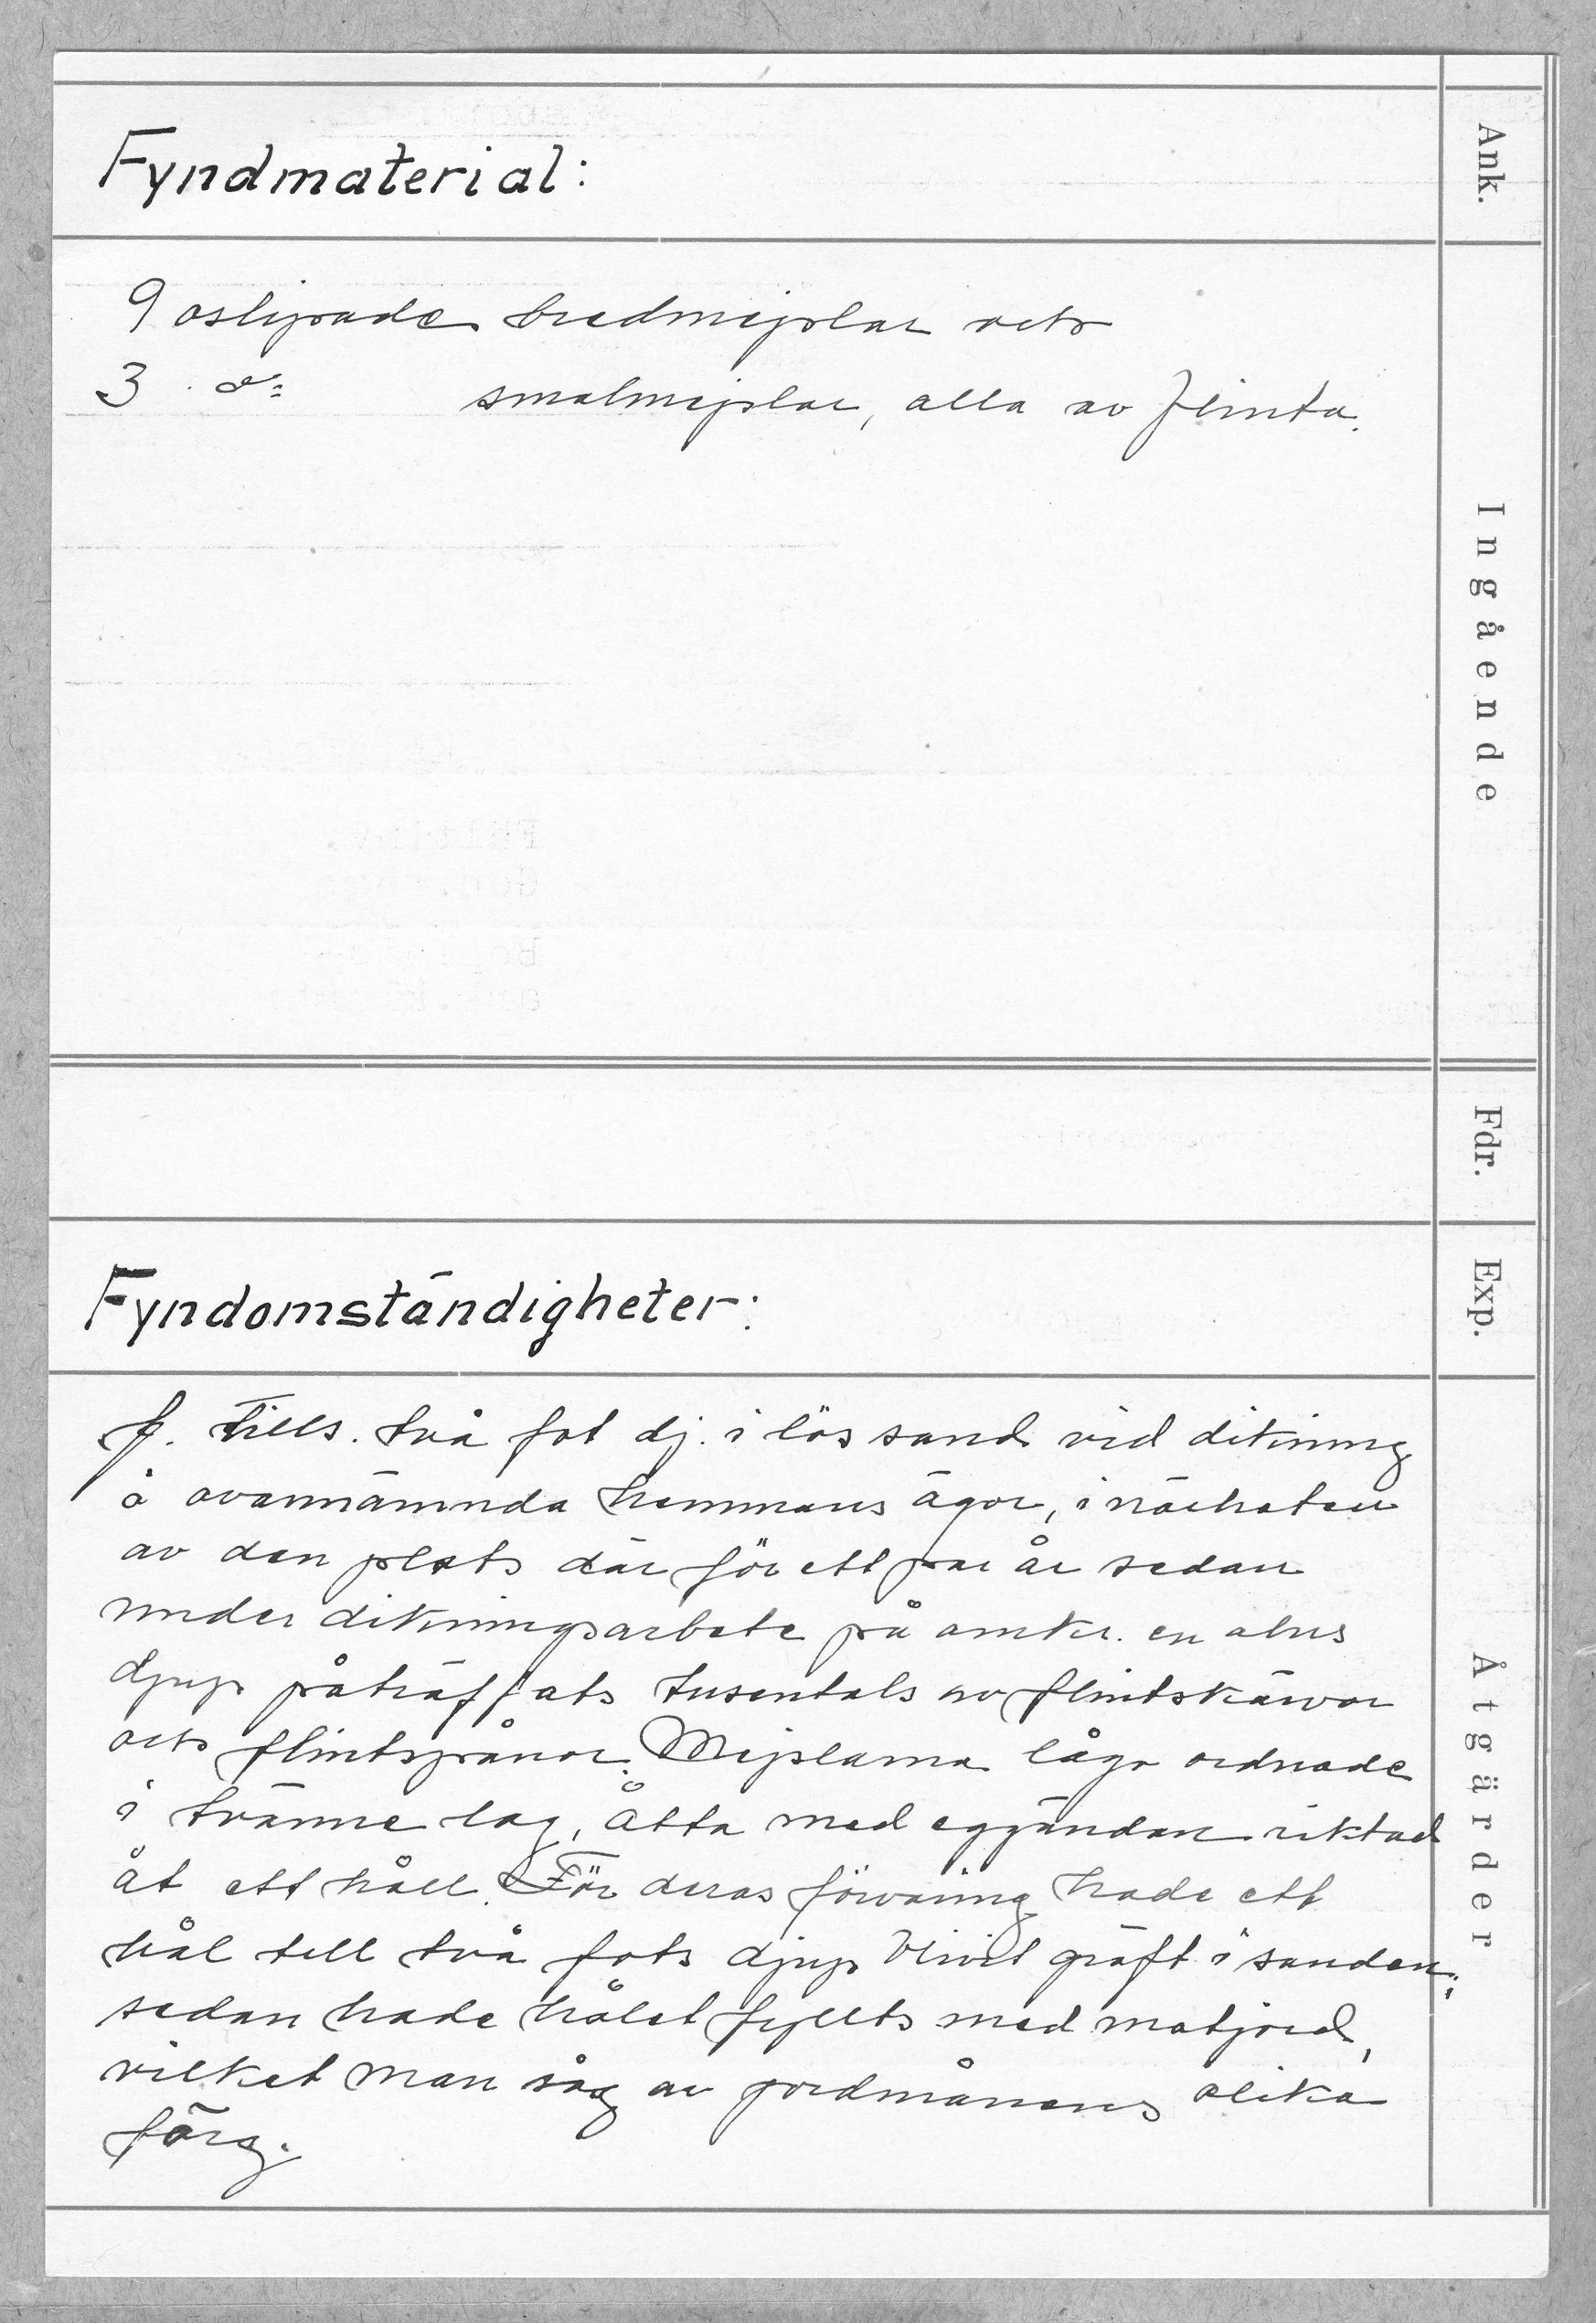 Fyndmaterial:
Ank.
9 oslipade bredmejslar och
3 d:o smalmejslar, alla av flinta.
Ingående
Fdr.
Fyndomständigheter:
Exp.
f. tills. två fot dj. i lös sand vid dikning
å ovannämnda hemmans ägor, i närheten
av den plats där för ett par år sedan
under dikningsarbete på omkr. en alns
djup påträffats tusentals av flintskärvor
och flintspånor. Mejslarna lågo ordnade
i tvänne lag, åtta med eggändan riktad
åt ett håll. För deras förvaring hade ett
hål till två fots djup blivit gräft i sanden;
sedan hade hålet fyllts med matjord,
vilket man såg av jordmånens olika
färg.
Åtgärder